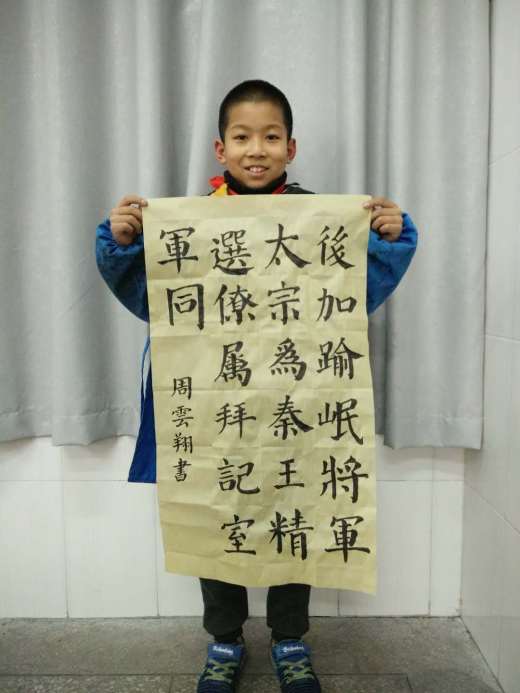 後加踰岷將軍
太宗為秦王精
選僚属拜記室
軍同
周雲翔書